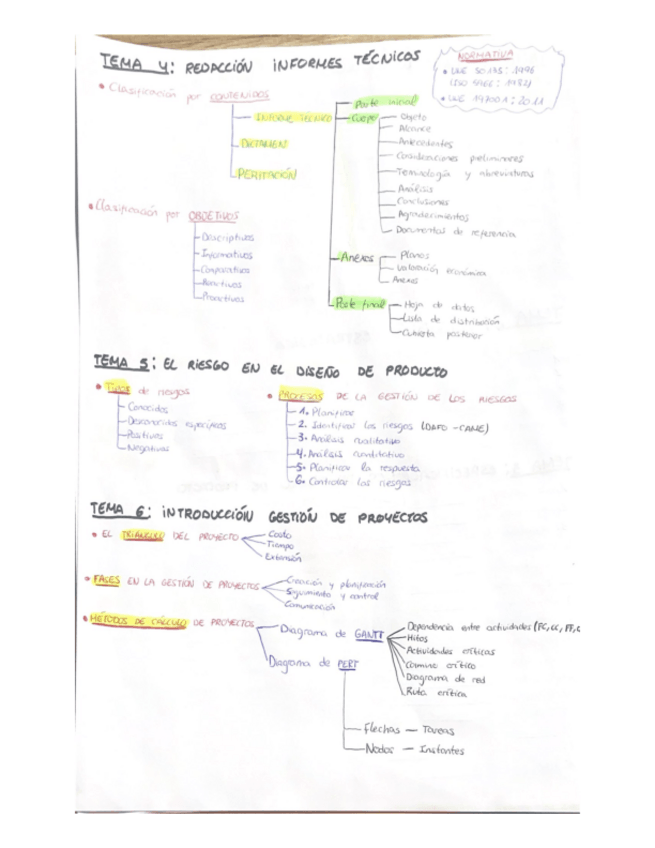 TEMA 4: REDACCIÓN INFORMES TÉCNICOS
NORMATIVA
• UNE 50135:1996
(ISO 5966:1982)
• UNE 157001:2014
• Clasificación por CONTENIDOS
INFORME TÉCNICO
DICTAMEN
PERITACIÓN
Parte inicial
Cuerpo
Objeto
Alcance
Antecedentes
Consideraciones preliminares
Terminología y abreviaturas
Análisis
Conclusiones
Agradecimientos
Documentos de referencia
Anexos
Planos
Valoración económica
Anexos
Parte final
Hoja de datos
Lista de distribución
Cubierta posterior
• Clasificación por OBJETIVOS
Descriptivos
Informativos
Comparativos
Reactivos
Proactivos
TEMA 5: EL RIESGO EN EL DISEÑO DE PRODUCTO
• TIPOS de riesgos
Conocidos
Desconocidos específicos
Positivos
Negativos
• PROCESOS DE LA GESTIÓN DE LOS RIESGOS
1. Planificar
2. Identificar los riesgos (DAFO - CAME)
3. Análisis cualitativo
4. Análisis cuantitativo
5. Planificar la respuesta
6. Controlar los riesgos
TEMA 6: INTRODUCCIÓN GESTIÓN DE PROYECTOS
• EL TRIÁNGULO DEL PROYECTO
Costo
Tiempo
Extensión
• FASES EN LA GESTIÓN DE PROYECTOS
Creación y planificación
Seguimiento y control
Comunicación
• MÉTODOS DE CÁLCULO DE PROYECTOS
Diagrama de GANTT
Dependencia entre actividades (FC, CC, FF, C
Hitos
Actividades críticas
Camino crítico
Diagrama de red
Ruta crítica
Diagrama de PERT
Flechas — Tareas
Nodos — Instantes